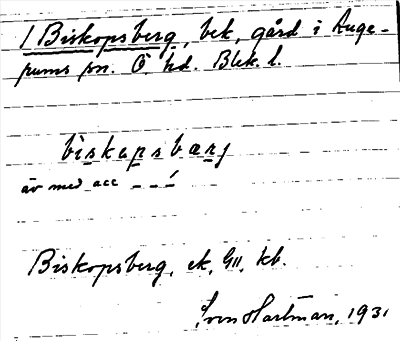 1 Biskopsberg, bek, gård i Auge-
rums sn. Ö. hd. Blek. l.
biskɑpsbærj
äv med acc _ _ _́
Biskopsberg, ek, GII, kb.
Sven Hartman, 1931